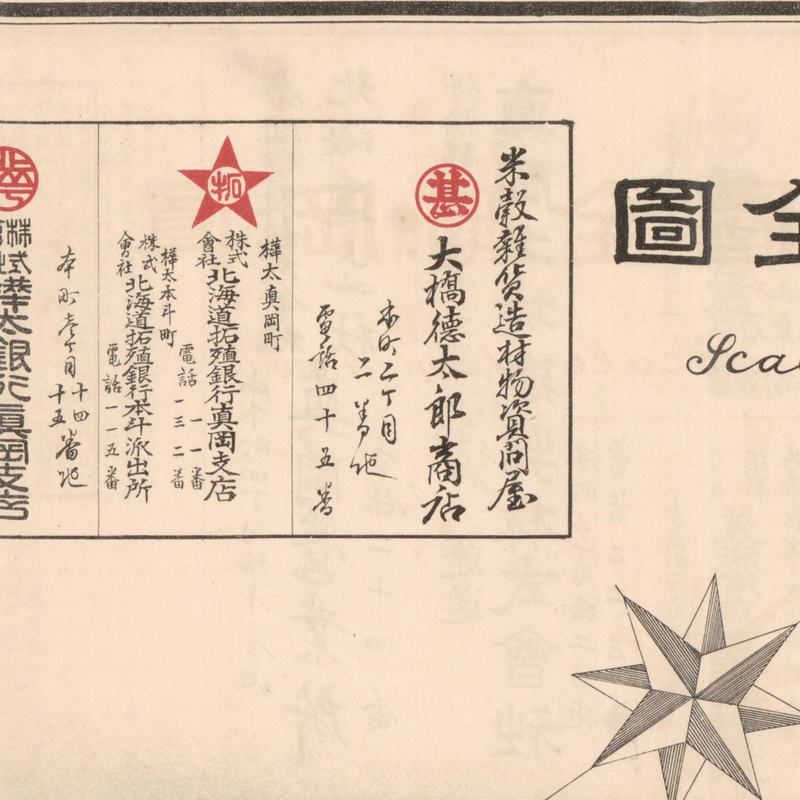 全圖
Sca
米穀雜貨造材物資問屋
甚
大橋德太郎商店
本町二丁目
二番地
電話四十五番
樺太真岡町
拓
株式會社北海道拓殖銀行真岡支店
電話一一番
一三二番
樺太本斗町
株式會社北海道拓殖銀行本斗派出所
電話一一五番
本町壱丁目
十四
十五番地
株式會社樺太銀行真岡支店